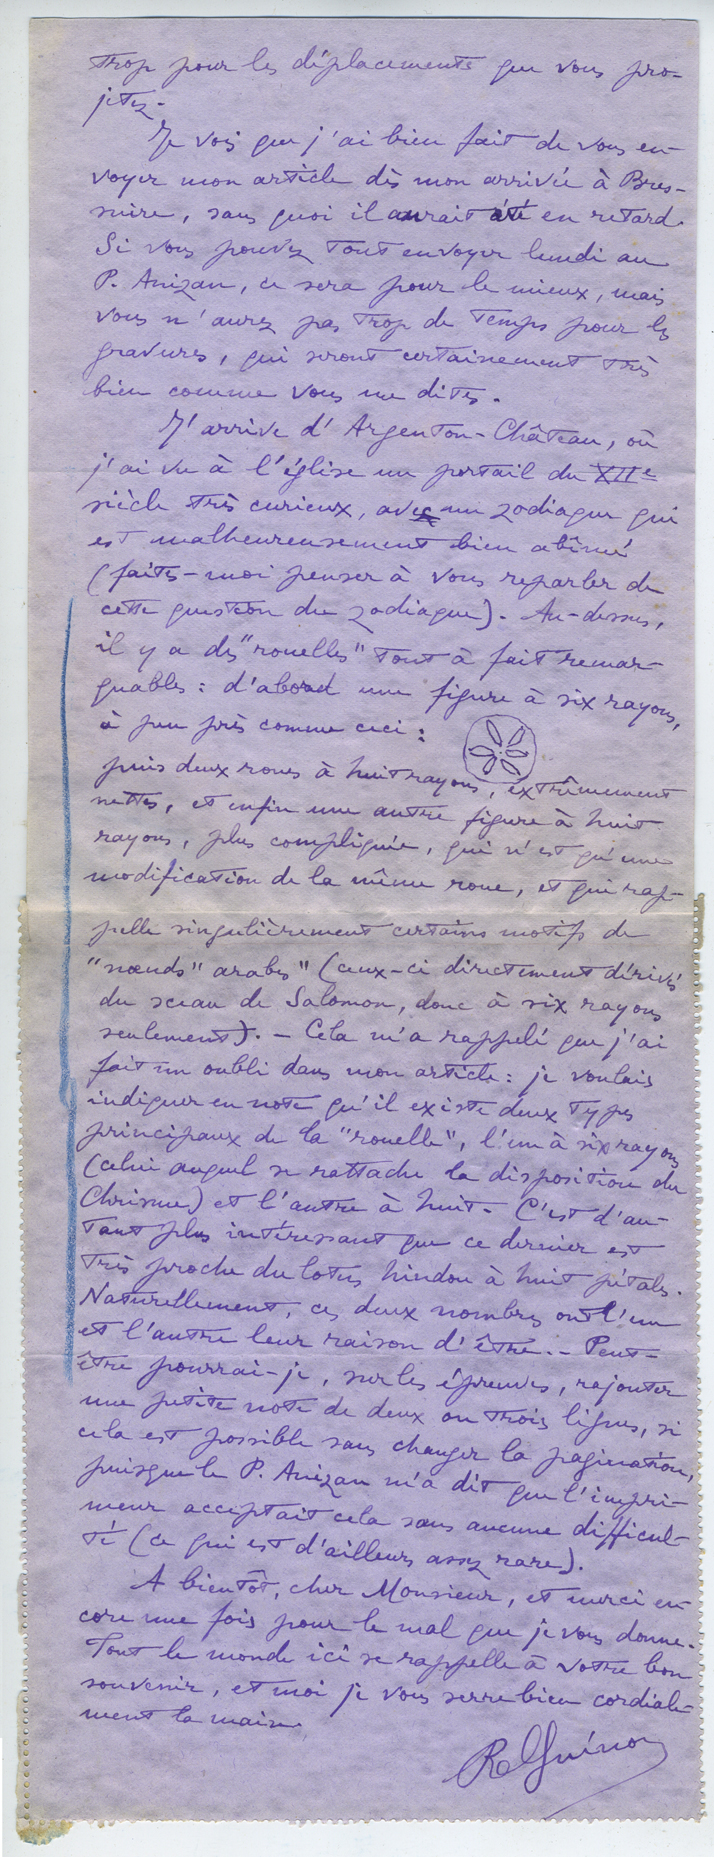 trop pour les déplacements que vous pro-
jetez.
Je vois que j'ai bien fait de vous en-
voyer mon article dès mon arrivée à Bres-
suire, sans quoi il aurait été en retard.
Si vous pouvez tout envoyer lundi au
P. Anizan, ce sera pour le mieux, mais
vous n'aurez pas trop de temps pour les
gravures, qui seront certainement très
bien comme vous me dites.
J'arrive d'Argenton-Château, où
j'ai vu à l'église un portail du XIIe
siècle très curieux, avec un zodiaque qui
est malheureusement bien abîmé
(faites-moi penser à vous reparler de
cette question du zodiaque). Au-dessus,
il y a des "rouelles" tout à fait remar-
quables : d'abord une figure à six rayons,
à peu près comme ceci :
puis deux roues à huit rayons, extrêmement
nettes, et enfin une autre figure à huit
rayons, plus compliquée, qui n'est qu'une
modification de la même roue, et qui rap-
pelle singulièrement certains motifs de
"nœuds" arabes" (ceux-ci directement dérivés
du sceau de Salomon, donc à six rayons
seulement). – Cela m'a rappelé que j'ai
fait un oubli dans mon article : je voulais
indiquer en note qu'il existe deux types
principaux de la "rouelle", l'un à six rayons
(celui auquel se rattache la disposition du
Chrisme) et l'autre à huit. C'est d'au-
tant plus intéressant que ce dernier est
très proche du lotus hindou à huit pétales.
Naturellement, ces deux nombres ont l'un
et l'autre leur raison d'être. – Peut-
être pourrai-je, sur les épreuves, rajouter
une petite note de deux ou trois lignes, si
cela est possible sans changer la pagination,
puisque le P. Anizan m'a dit que l'impri-
meur acceptait cela sans aucune difficul-
té (ce qui est d'ailleurs assez rare).
A bientôt, cher Monsieur, et merci en-
core une fois pour le mal que je vous donne.
Tout le monde ici se rappelle à votre bon
souvenir, et moi je vous serre bien cordiale-
ment la main.
René Guénon